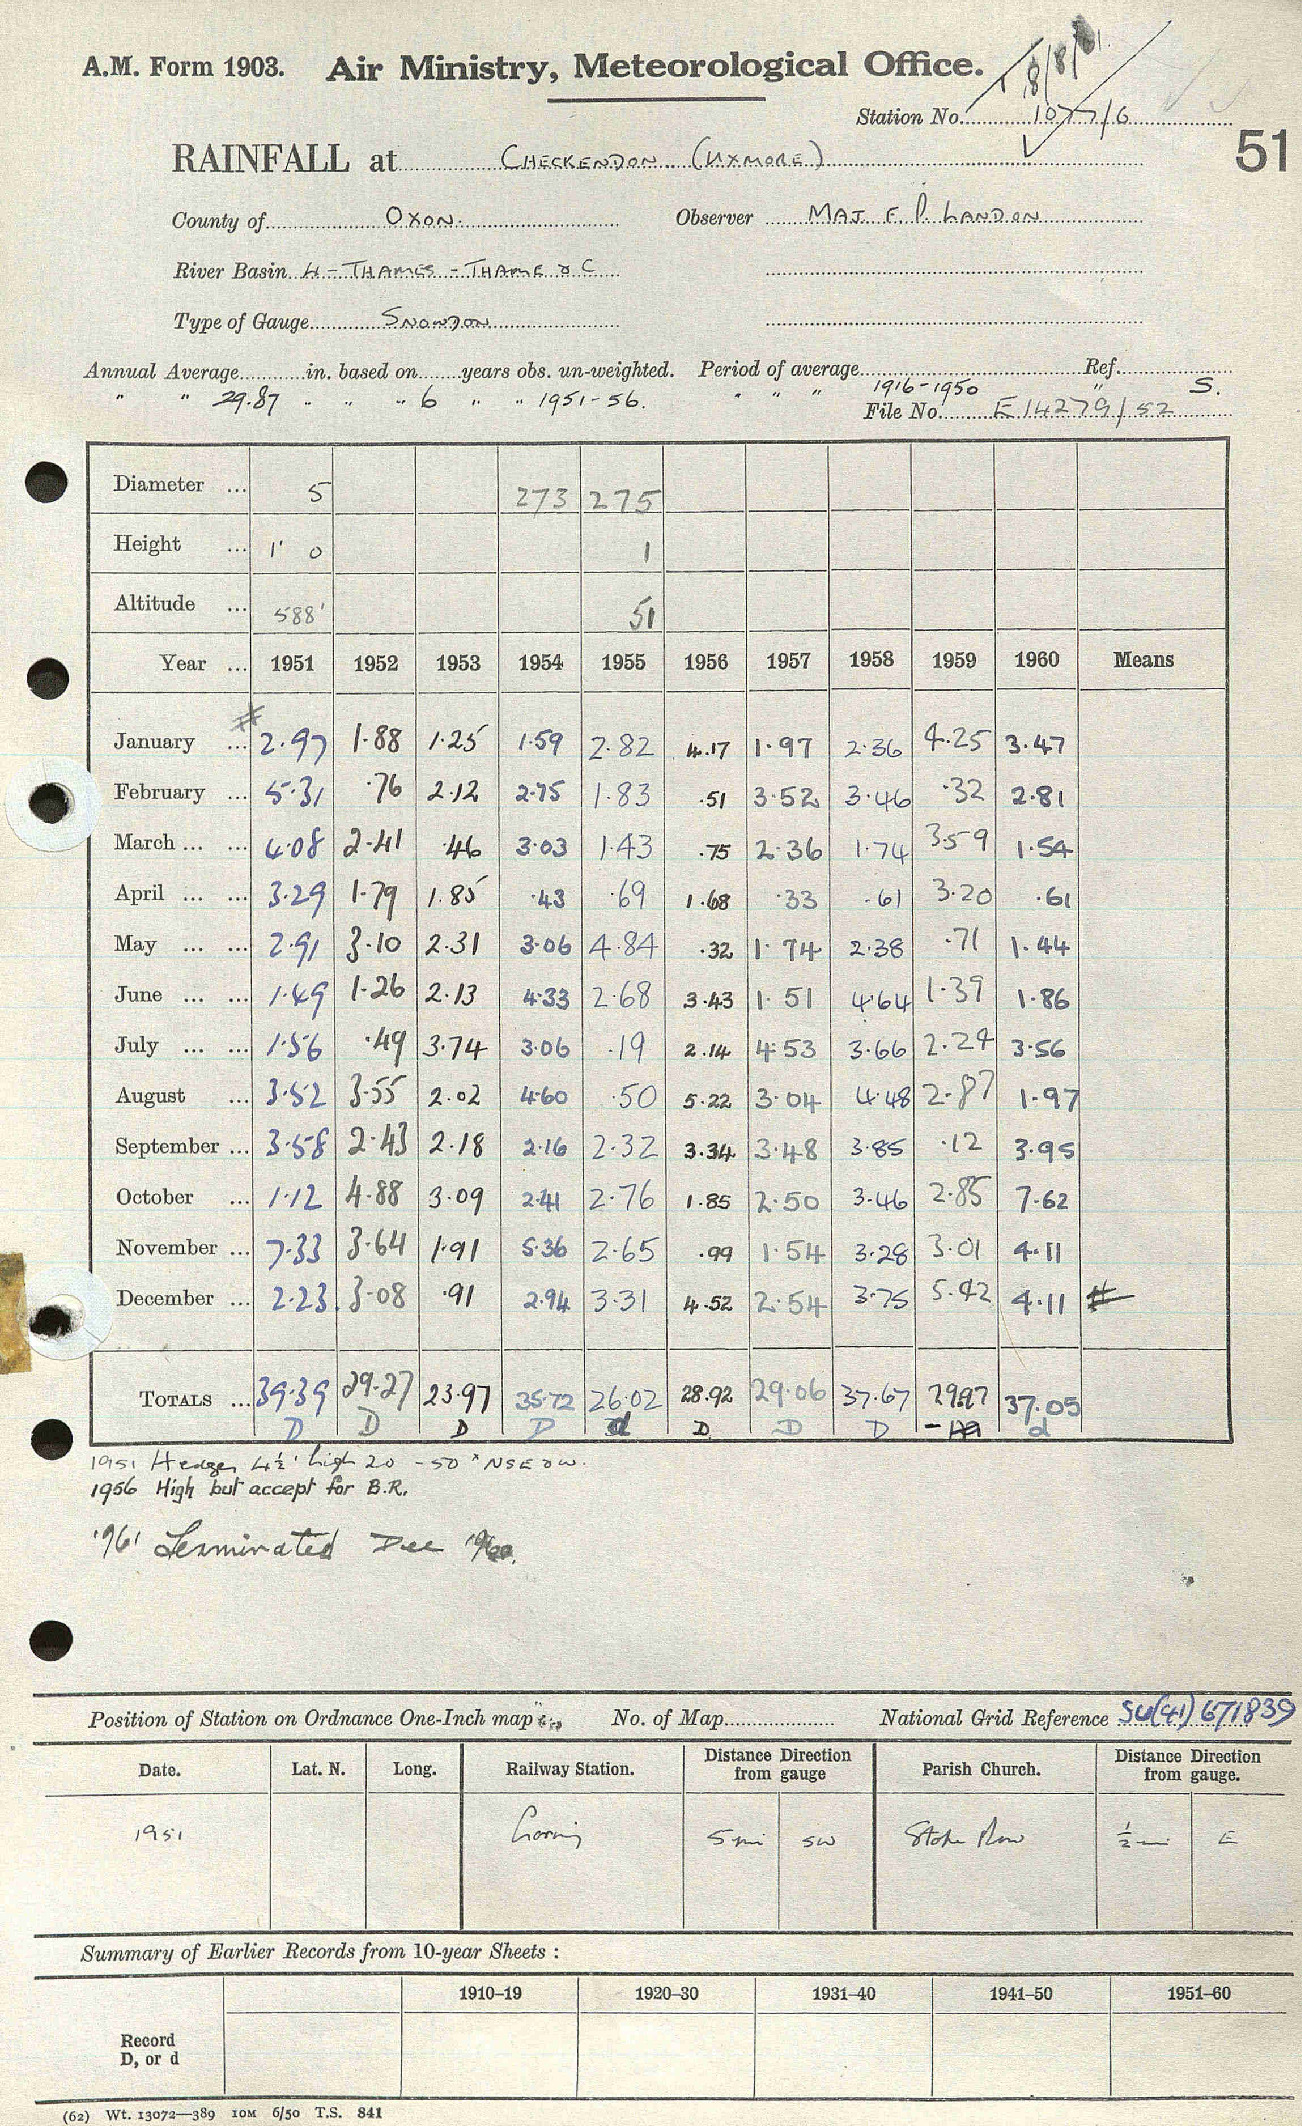 A.M. Form 1903. Air Ministry, Meteorological Office.
18/8/61.
Station No. 1077/6
51
RAINFALL at CHECKENDON (UXMORE)
County of OXON. Observer MAJ F. P. LANDON
River Basin 4 - THAMES - THAME & C
Type of Gauge SNOWDON
Annual Average in. based on years obs. un-weighted. Period of average Ref.
" " 29.87 " " " 6 " " 1951-56. " " " 1916-1950 " S.
File No. E 14279/52
Diameter ... 5 273 275
Height ... 1' 0 1
Altitude ... 588' 51
Year ... 1951 1952 1953 1954 1955 1956 1957 1958 1959 1960 Means
January ... # 2.97 1.88 1.25 1.59 2.82 4.17 1.97 2.36 4.25 3.47
February ... 5.31 .76 2.12 2.75 1.83 .51 3.52 3.46 .32 2.81
March ... ... 4.08 2.41 .46 3.03 1.43 .75 2.36 1.74 3.59 1.54
April ... ... 3.29 1.79 1.85 .43 .69 1.68 .33 .61 3.20 .61
May ... ... 2.91 3.10 2.31 3.06 4.84 .32 1.74 2.38 .71 1.44
June ... ... 1.49 1.26 2.13 4.33 2.68 3.43 1.51 4.64 1.39 1.86
July ... ... 1.56 .49 3.74 3.06 .19 2.14 4.53 3.66 2.24 3.56
August ... 3.52 3.55 2.02 4.60 .50 5.22 3.04 4.48 2.87 1.97
September ... 3.58 2.43 2.18 2.16 2.32 3.34 3.48 3.85 .12 3.95
October ... 1.12 4.88 3.09 2.41 2.76 1.85 2.50 3.46 2.85 7.62
November ... 7.33 3.64 1.91 5.36 2.65 .99 1.54 3.28 3.01 4.11
December ... 2.23 3.08 .91 2.94 3.31 4.52 2.54 3.75 5.42 4.11 #
TOTALS ... 39.39 29.27 23.97 35.72 26.02 28.92 29.06 37.67 29.97 37.05
D D D D d D D D d
1951 Hedges 4½' high 20 - 50' N S E & W.
1956 High but accept for B.R.
1961 Terminated Dec 1960.
Position of Station on Ordnance One-Inch map: No. of Map National Grid Reference SU(41) 671839
Date. Lat. N. Long. Railway Station. Distance Direction from gauge Parish Church. Distance Direction from gauge.
1951 Goring 5 mi SW Stoke Row ½ mi E
Summary of Earlier Records from 10-year Sheets :
1910–19 1920–30 1931–40 1941–50 1951–60
Record
D, or d
(62) Wt. 13072—389 10M 6/50 T.S. 841